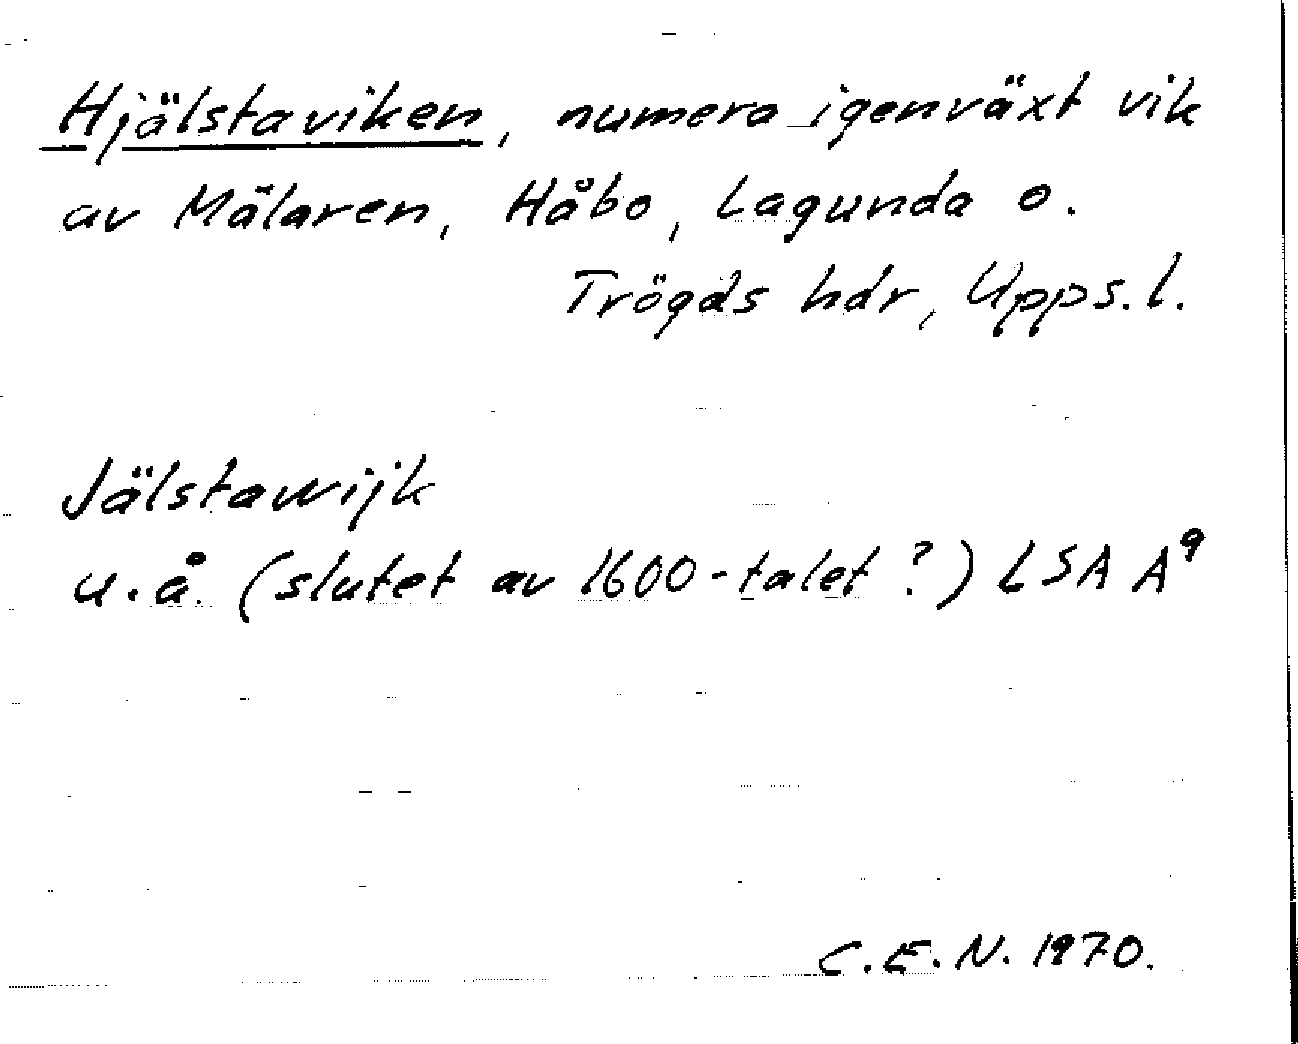 Hjälstaviken, numera igenväxt vik
av Mälaren, Håbo, Lagunda o.
Trögds hdr, Upps. l.
Jälstawijk
u. å. (slutet av 1600-talet?) LSA A⁹
C. E. N. 1970.